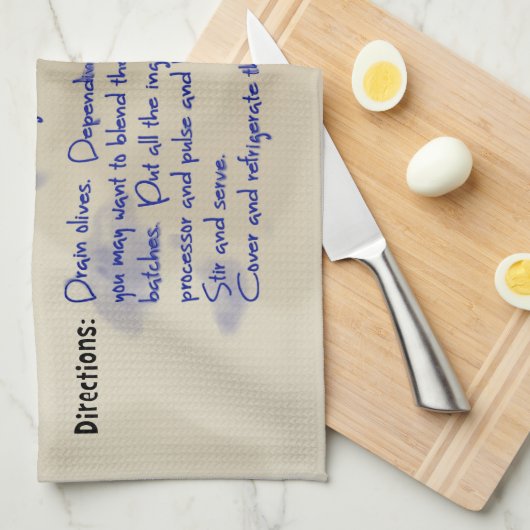 Directions:
Drain olives. Depending
you may want to blend the
batches. Put all the ing
processor and pulse and
Stir and serve.
Cover and refrigerate th